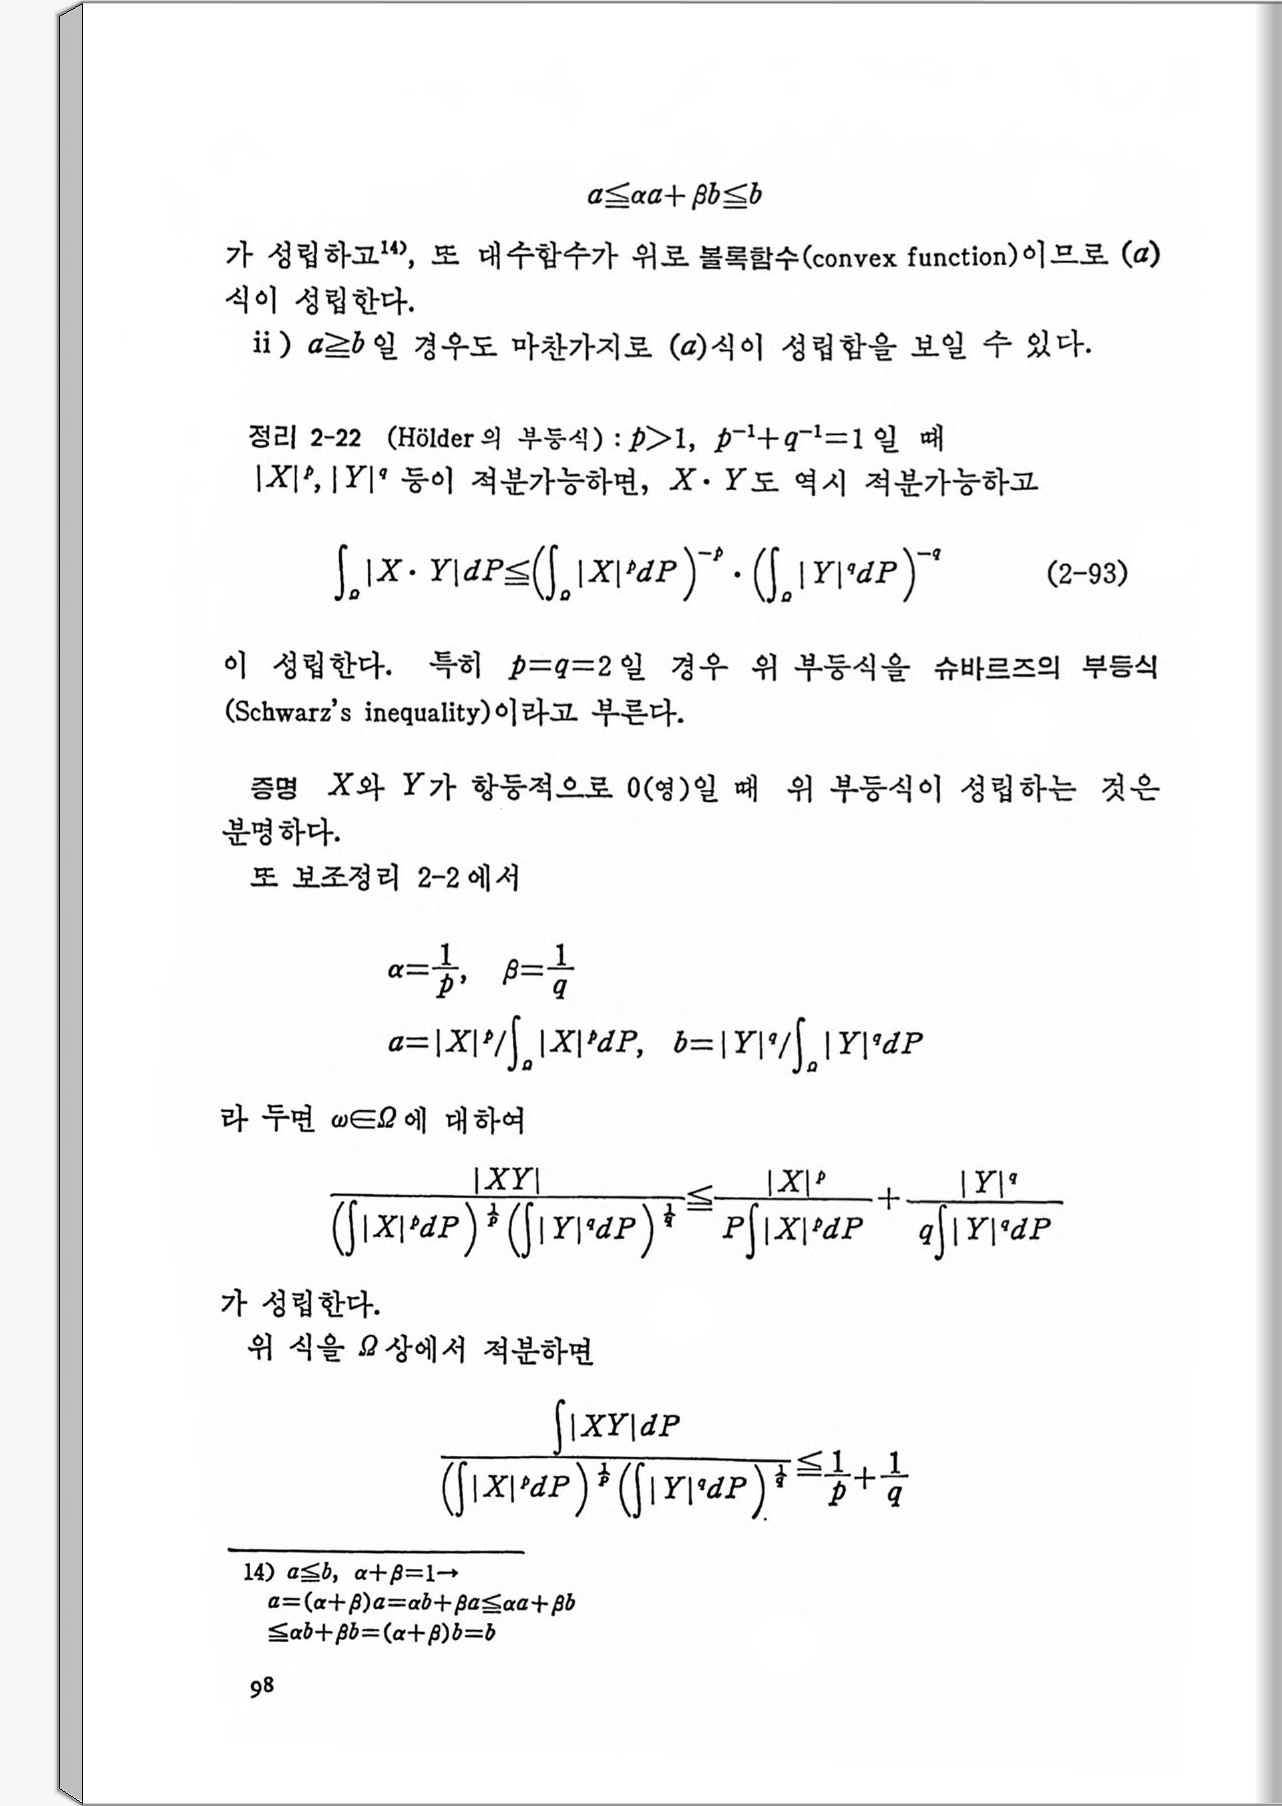 a≦αa+βb≦b
가 성립하고¹⁴⁾, 또 대수함수가 위로 볼록함수(convex function)이므로 (a)
식이 성립한다.
ii) a≧b일 경우도 마찬가지로 (a)식이 성립함을 보일 수 있다.
정리 2-22 (Hölder의 부등식) : p>1, p⁻¹+q⁻¹=1일 때
|X|ᵖ, |Y|^q 등이 적분가능하면, X·Y도 역시 적분가능하고
∫_Ω |X·Y|dP≦(∫_Ω |X|^p dP)^{-p}·(∫_Ω |Y|^q dP)^{-q} (2-93)
이 성립한다. 특히 p=q=2일 경우 위 부등식을 슈바르즈의 부등식
(Schwarz's inequality)이라고 부른다.
증명 X와 Y가 항등적으로 0(영)일 때 위 부등식이 성립하는 것은
분명하다.
또 보조정리 2-2에서
α=1/p, β=1/q
a=|X|^p/∫_Ω |X|^p dP, b=|Y|^q/∫_Ω |Y|^q dP
라 두면 ω∈Ω에 대하여
|XY| / (∫|X|^p dP)^{1/p} (∫|Y|^q dP)^{1/q} ≦ |X|^p / P∫|X|^p dP + |Y|^q / q∫|Y|^q dP
가 성립한다.
위 식을 Ω상에서 적분하면
∫|XY|dP / (∫|X|^p dP)^{1/p} (∫|Y|^q dP)^{1/q} ≦ 1/p + 1/q
14) a≦b, α+β=1→
a=(α+β)a=αb+βa≦αa+βb
≦αb+βb=(α+β)b=b
98